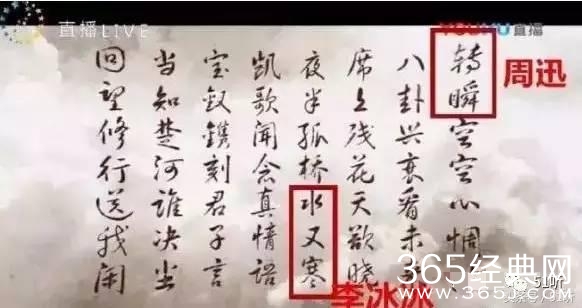 直播LIVE
YOUKU直播
转瞬空空心惆
八卦兴衰看未
席上残花天欲晓
夜半孤桥水又寒
凯歌闻念真情语
宝钗镌刻君子言
当知楚河谁决
回望修行送我闲
周迅
李冰
365经典网
www.365jz.com